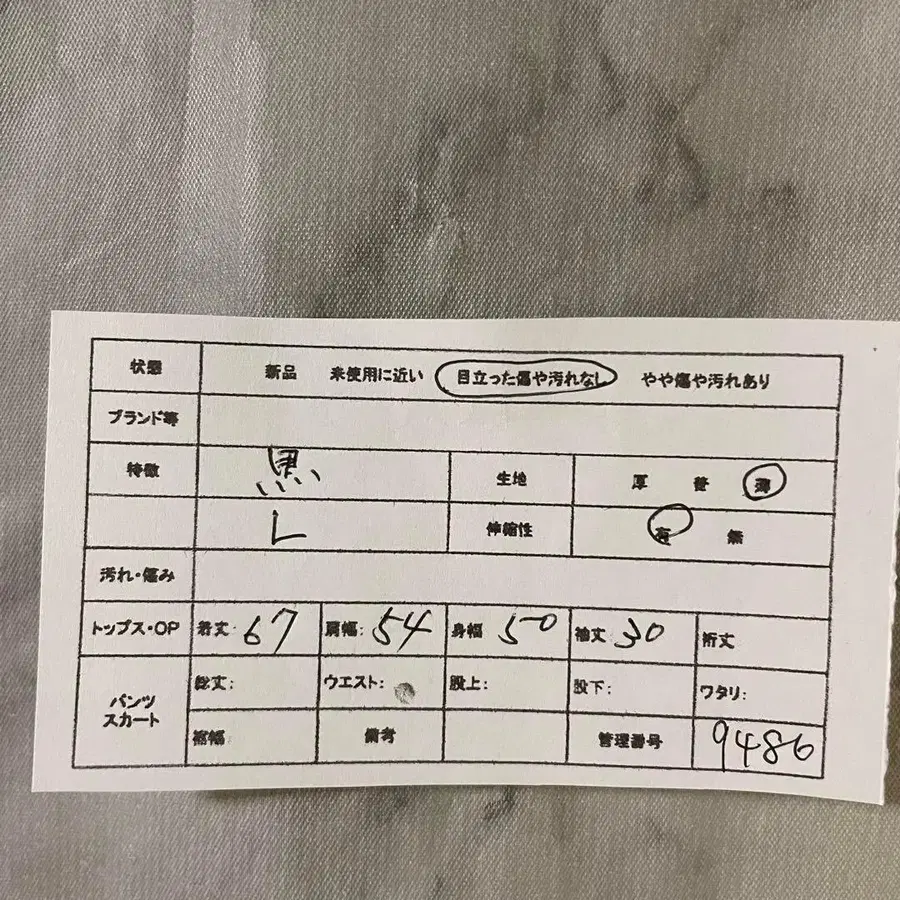 状態 新品 未使用に近い 目立った傷や汚れなし やや傷や汚れあり
ブランド等
特徴 黒 生地 厚 普 薄
L 伸縮性 有 無
汚れ・傷み
トップス・OP 着丈: 67 肩幅: 54 身幅 50 袖丈 30 裄丈
パンツ スカート 総丈: ウエスト: 股上: 股下: ワタリ:
裾幅 備考 管理番号 9486